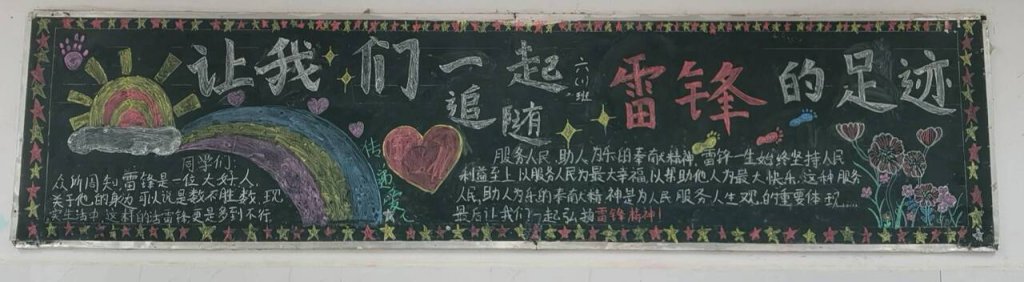 让我们一起追随雷锋的足迹
六(3)班
同学们:
众所周知,雷锋是一位大好人,
关于他的事迹可以说是数不胜数,现
实生活中,这样的活雷锋更是多到不行
传递爱心
服务人民,助人为乐的奉献精神,雷锋一生始终坚持人民
利益至上以服务人民为最大幸福,以帮助他人为最大快乐,这种服务
人民,助人为乐的奉献精神是为人民服务人生观的重要体现……
最后让我们一起弘扬雷锋精神!